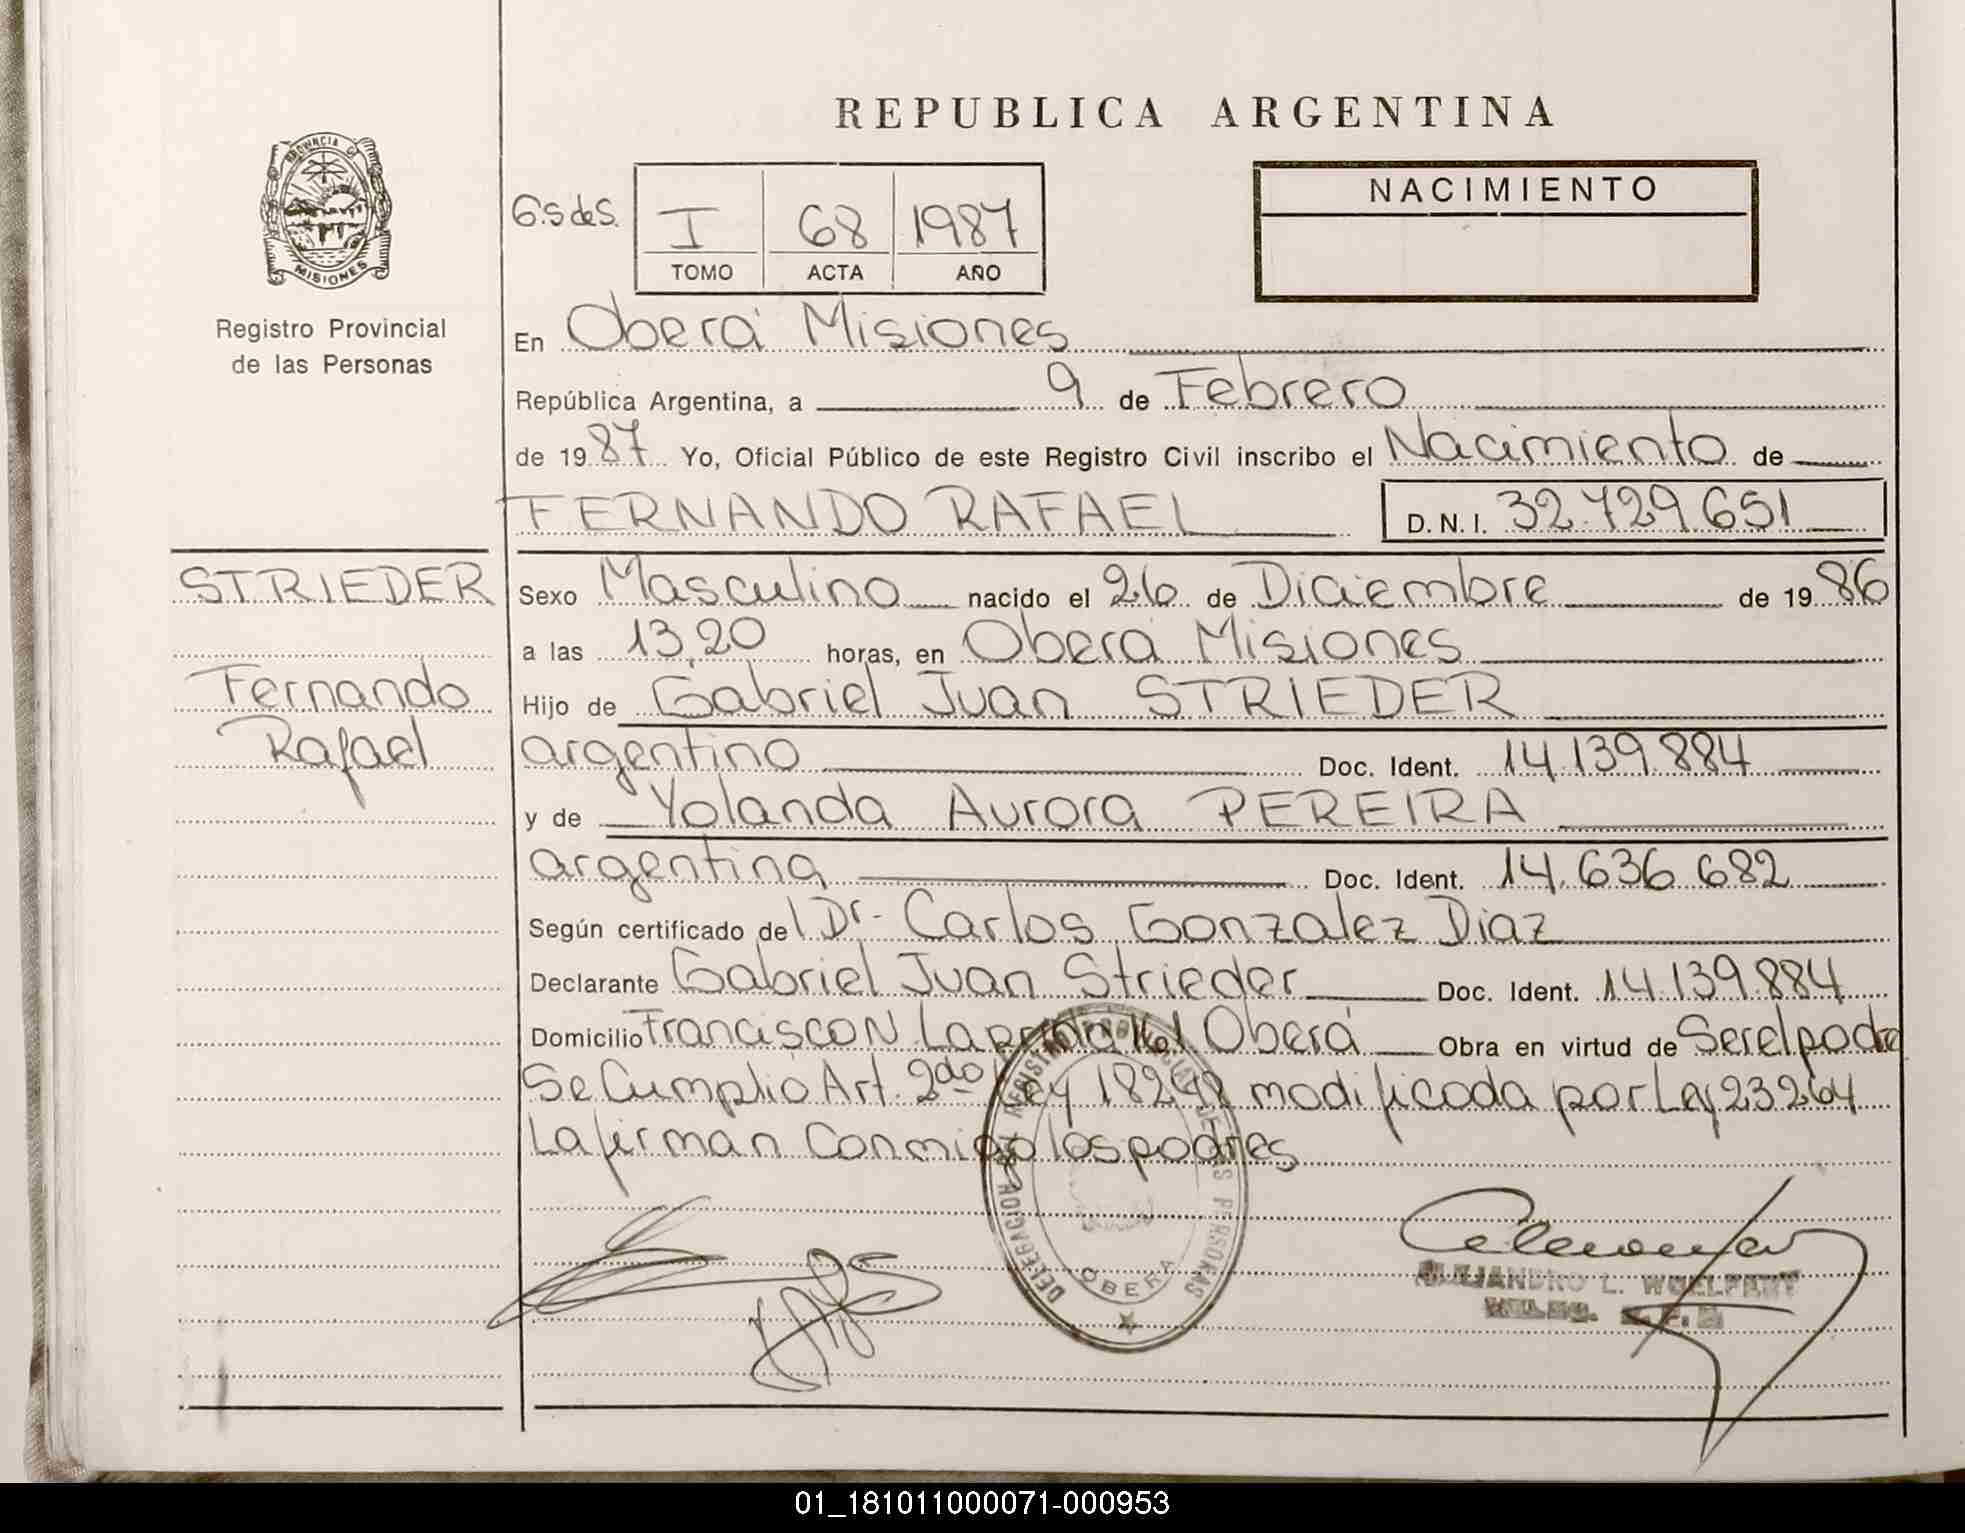 REPUBLICA ARGENTINA
PROVINCIA DE
MISIONES
Registro Provincial
de las Personas
G.S de S.
I 68 1987
TOMO ACTA AÑO
NACIMIENTO
En Oberá Misiones
República Argentina, a 9 de Febrero
de 1987 Yo, Oficial Público de este Registro Civil inscribo el Nacimiento de
FERNANDO RAFAEL D.N.I. 32.729.651
STRIEDER
Fernando
Rafael
Sexo Masculino nacido el 26 de Diciembre de 1986
a las 13,20 horas, en Oberá Misiones
Hijo de Gabriel Juan STRIEDER
argentino Doc. Ident. 14.139.884
y de Yolanda Aurora PEREIRA
argentina Doc. Ident. 14.636.682
Según certificado del Dr. Carlos Gonzalez Diaz
Declarante Gabriel Juan Strieder Doc. Ident. 14.139.884
Domicilio Francisco N. Laprida Oberá Obra en virtud de Ser el padre
Se Cumplio Art. 2do Ley 18248 modificada por Ley 23264
La firman Conmigo los padres
DELEGACION DEL REGISTRO PROVINCIAL DE LAS PERSONAS
OBERA
ALEJANDRO L. WOELFERT
01_181011000071-000953